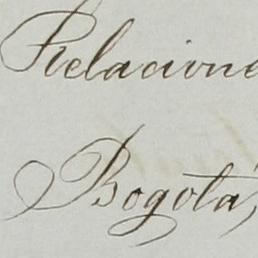 Relacione
Bogotá,